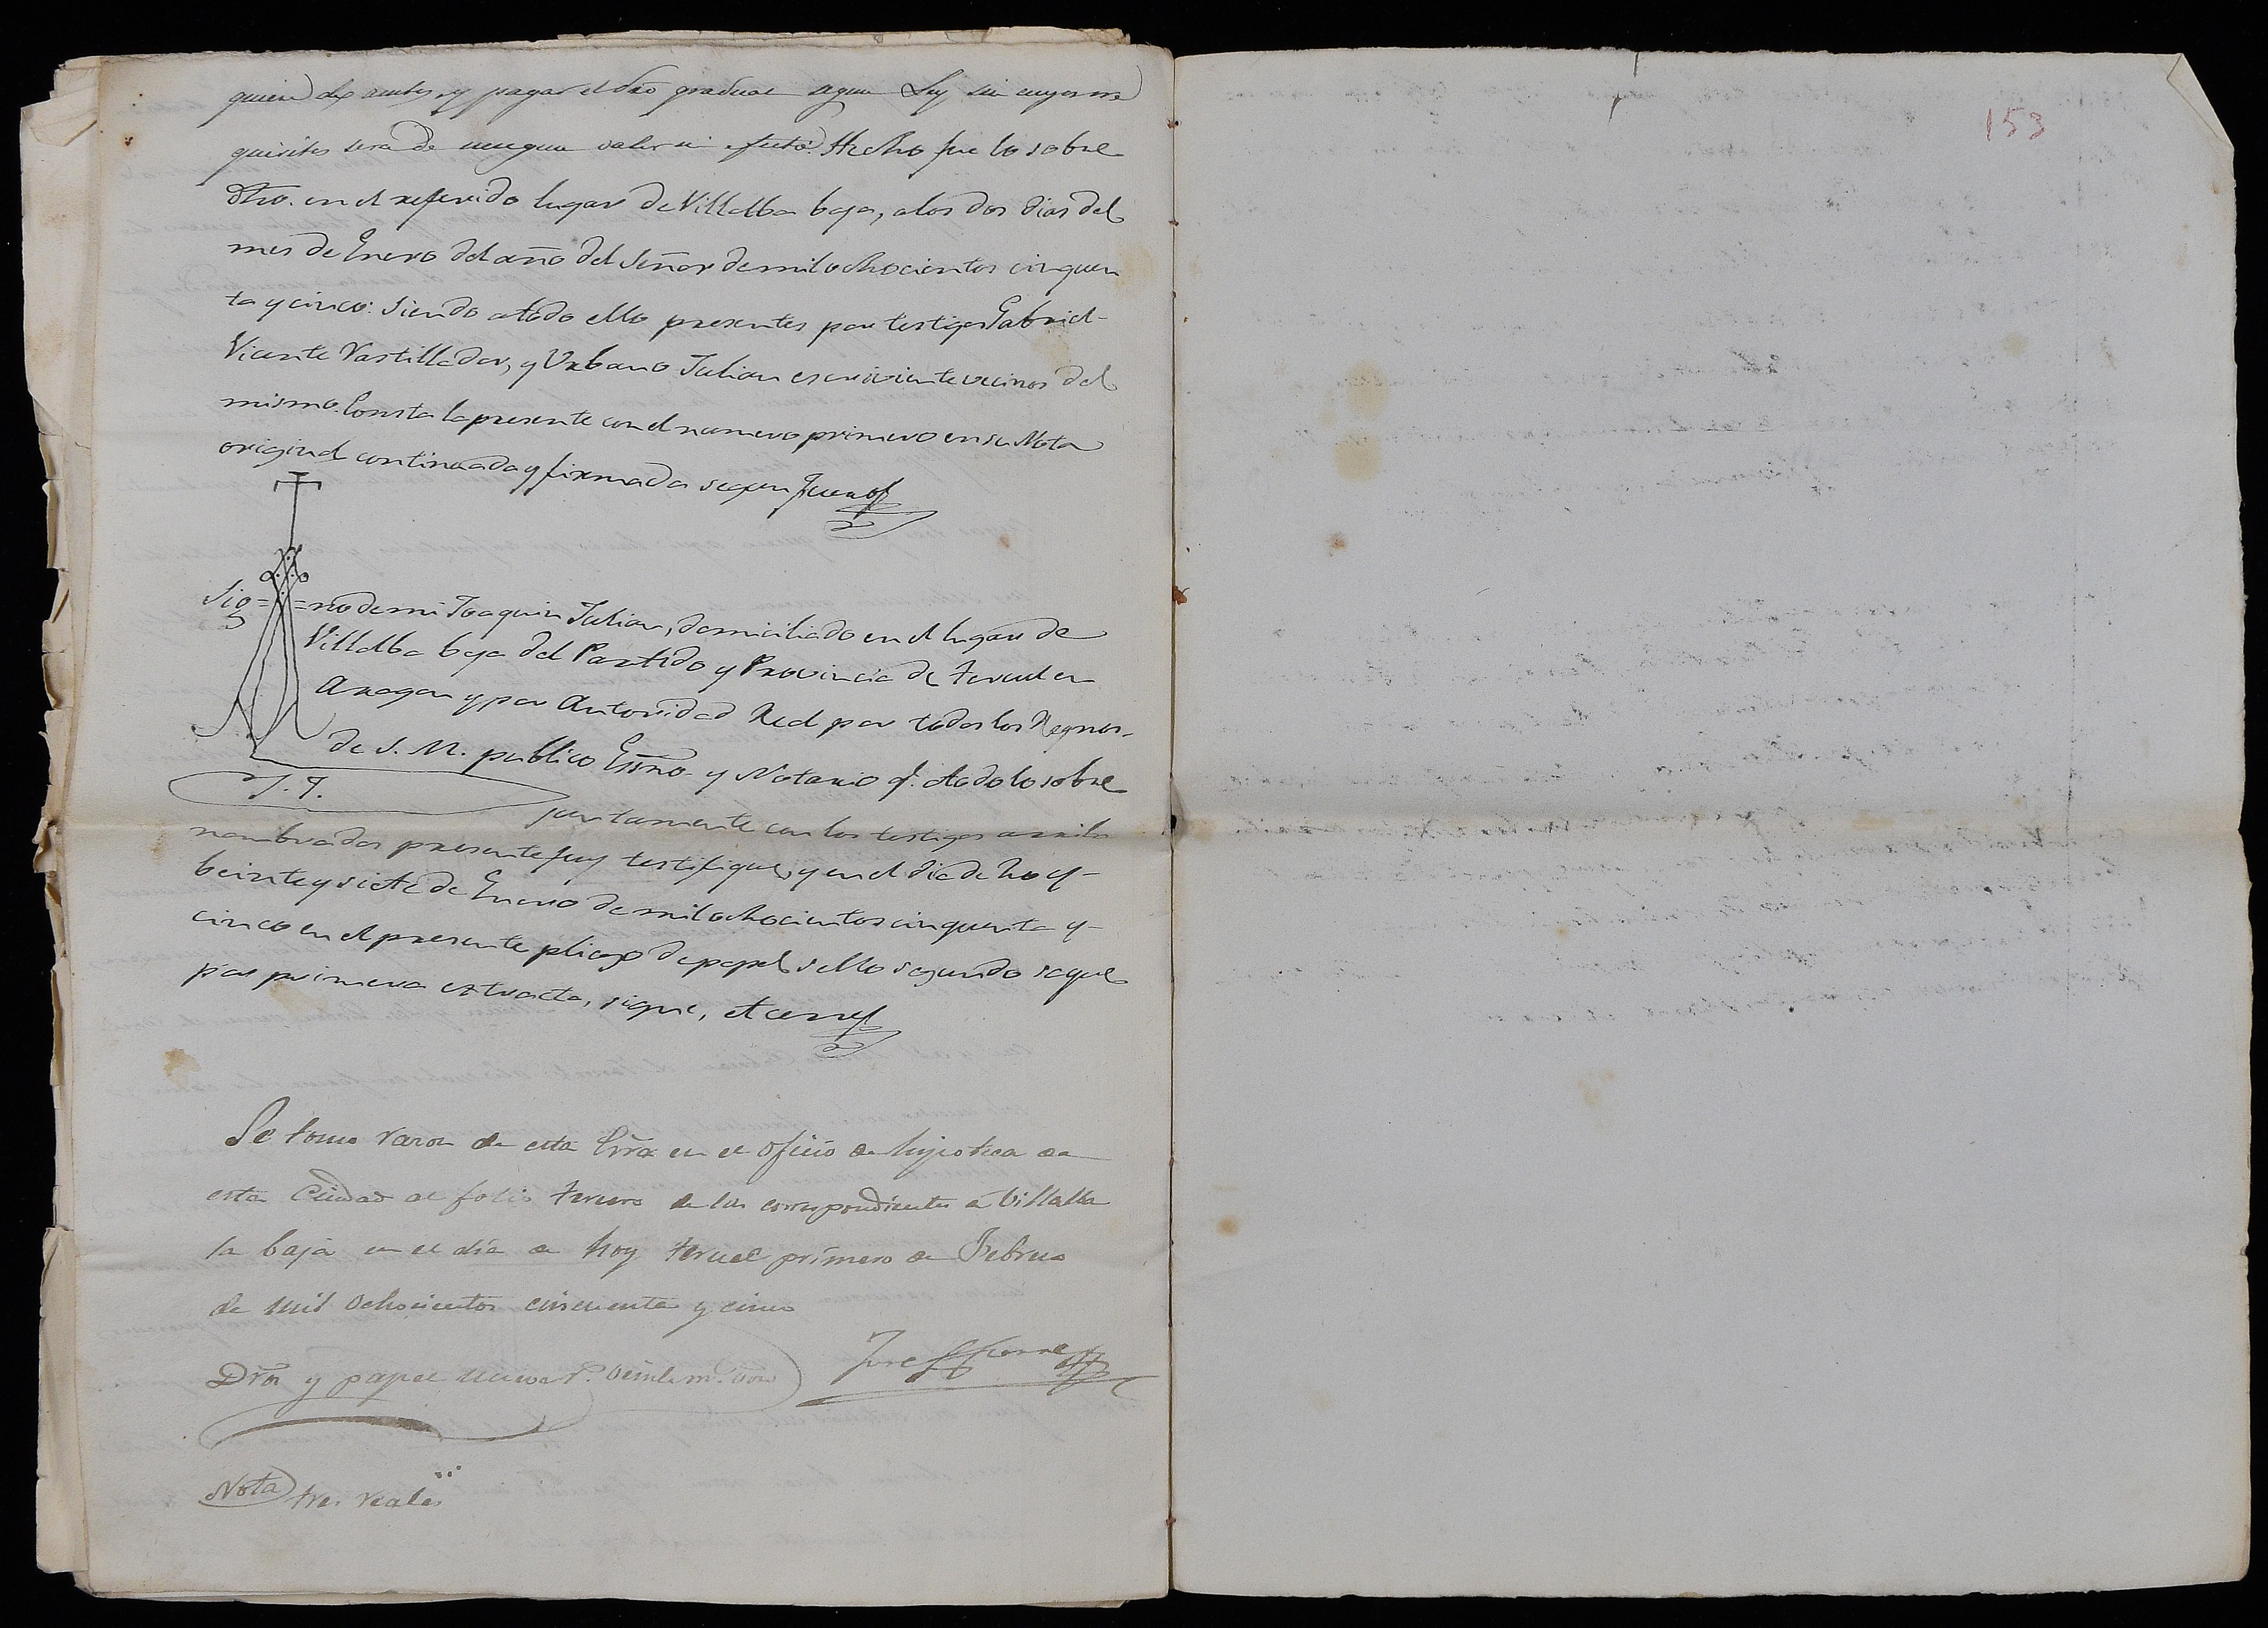 quiera de antes, y pagar el dro gradual segun Ley sin cuyos re
quisitos sera de ningun valor ni efecto. Hecho fue lo sobre
dho. en el referido lugar de Villalba baja, a los dos dias del
mes de Enero del año del Señor de mil ochocientos cinquen
ta y cinco: Siendo a todo ello presentes por testigos Gabriel
Vicente Rastillador, y Urbano Julian escriviente vecinos del
mismo. Consta la presente con el numero primero en su Nota
original continuada y firmada segun fuero
Sig= =no de mi Joaquin Julian, domiciliado en el lugar de
Villalba baja del Partido y Provincia de Teruel en
Aragon y por Autoridad Real por todos los Reynos
de S. M. publico Essno. y Notario q.e a todo lo sobre
J. J.
juntamente con los testigos arriba
nombrados presente fuy testifique, y en el dia de hoy
beinte y siete de Enero de mil ochocientos cinquenta y
cinco en el presente pliego de papel sello segundo saque
por primera extracta, signé, et cerré
Se tomo razon de esta Essra en el oficio de hipoteca de
esta Ciudad al folio tercero de los correspondientes a Villalba
la baja en el dia de hoy Teruel primero de Febrero
de mil ochocientos cincuenta y cinco
Dros y papel nueve r.s veinte m.s
Nota tres reales
153